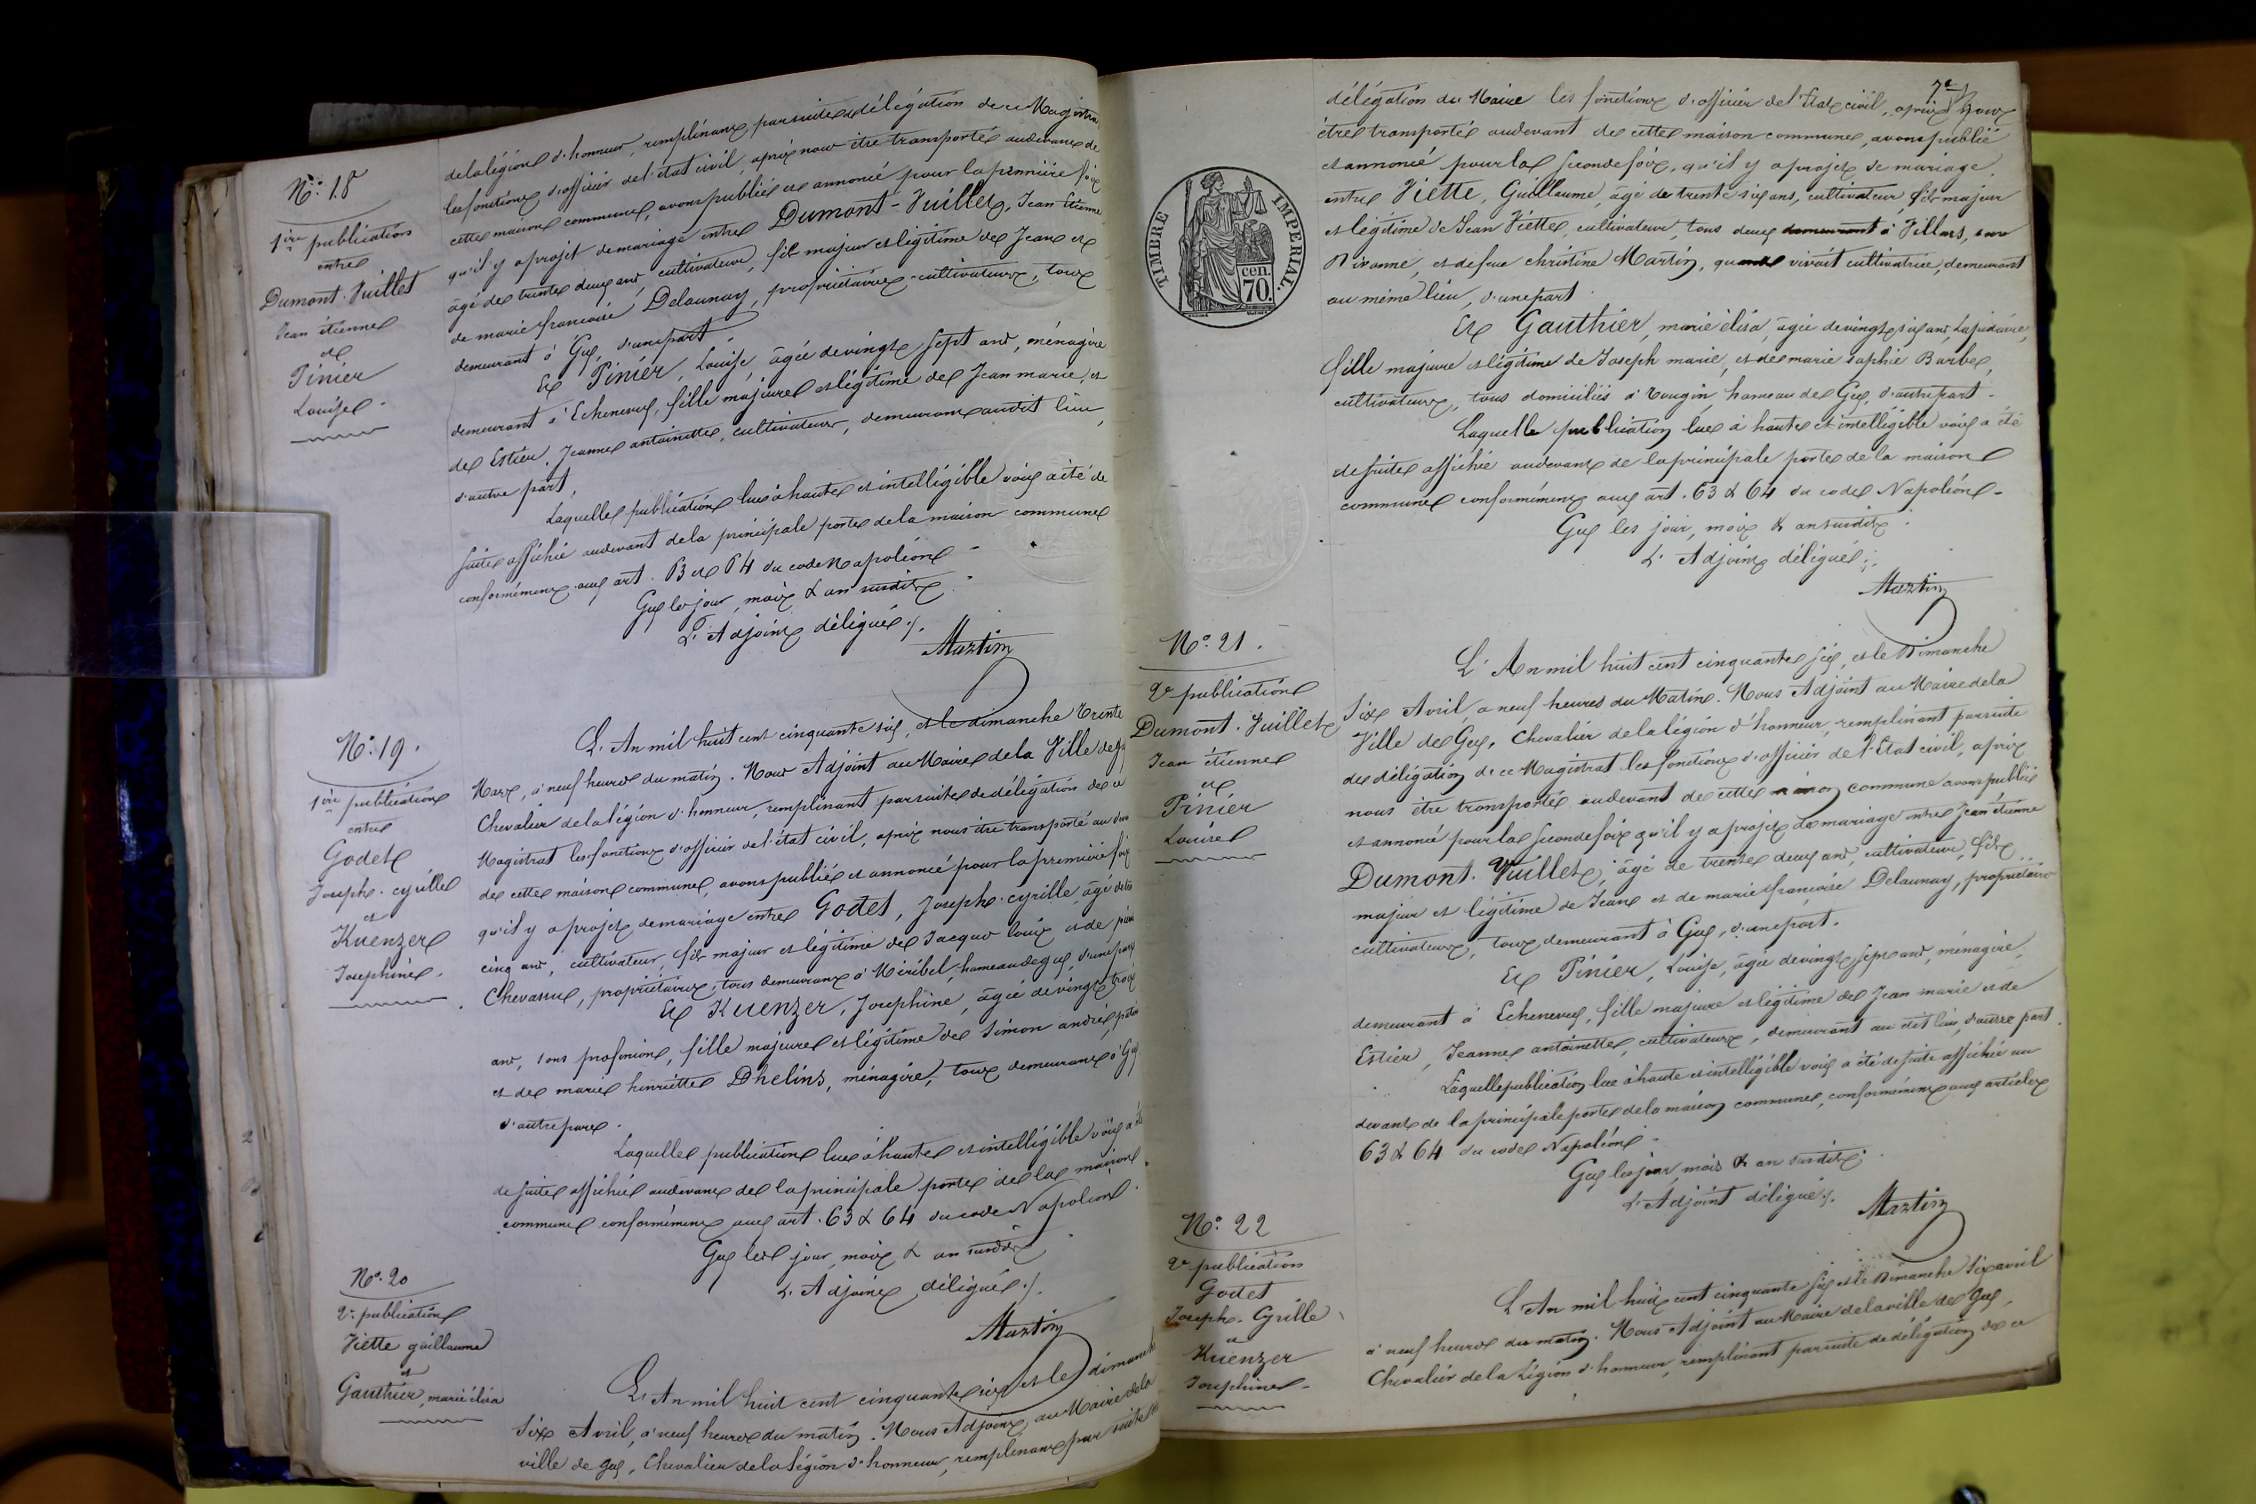 N.° 18
1ère publication
entre
Dumont-Vuillet
Jean étienne
et
Pinier
Louise
de la légion d'honneur, remplissant par suite de délégation de ce Magistrat
les fonctions d'officier de l'état civil, après nous être transporté au devant de
cette maison commune, avons publié et annoncé pour la première fois
qu'il y a projet de mariage entre Dumont-Vuillet, Jean Etienne
âgé de trente deux ans, cultivateur, fils majeur et légitime de Jean et
de marie françoise Delaunay, propriétaires-cultivateurs, tous
demeurant à Gex, d'une part
Et Pinier, Louise, âgée de vingt sept ans, ménagère
demeurant à Echenevex, fille majeure et légitime de Jean marie, et
de Estier, Jeanne antoinette, cultivateurs, demeurant audit lieu,
d'autre part,
Laquelle publication lue à haute et intelligible voix a été de
suite affichée au devant de la principale porte de la maison commune
conformément aux art. 63 et 64 du code Napoléon
Gex les jour, mois & an susdits
L'Adjoint délégué
Martin
N.° 19.
1ère publication
entre
Godet
Joseph-cyrille
et
Kuenzer
Josephine
L'An mil huit cent cinquante six, et le dimanche trente
Mars, à neuf heures du matin. Nous Adjoint au Maire de la Ville de Gex
Chevalier de la légion d'honneur, remplissant par suite de délégation de ce
Magistrat les fonctions d'officier de l'état civil, après nous être transporté au devant
de cette maison commune, avons publié et annoncé pour la première fois
qu'il y a projet de mariage entre Godet, Joseph-cyrille, âgé de
cinq ans, cultivateur, fils majeur et légitime de Jacques louis et de
Chevassu, propriétaires, tous demeurant à Miribel, hameau de gex, d'une part
Et Kuenzer, Josephine, âgée de vingt trois
ans, sans profession, fille majeure et légitime de Simon andré,
et de marie henriette Dhelins, ménagère, tous demeurant à Gex
d'autre part.
Laquelle publication lue à haute et intelligible voix a été
de suite affichée au devant de la principale porte de la maison
commune conformément aux art. 63 & 64 du code Napoléon
Gex les jour, mois & an susdits
L'Adjoint délégué
Martin
N.° 20
2e publication
Viette guillaume
et
Gauthier, marie élisa
L'An mil huit cent cinquante six, et le dimanche
Six Avril, à neuf heures du matin. Nous Adjoint au Maire de la
ville de gex, Chevalier de la légion d'honneur, remplissant par suite de
7e
délégation du Maire les fonctions d'officier de l'Etat civil, après nous
être transporté au devant de cette maison commune, avons publié
et annoncé pour la seconde fois, qu'il y a projet de mariage
entre Viette, Guillaume, âgé de trente six ans, cultivateur, fils majeur
et légitime de Jean Viette, cultivateur, tous deux demeurant à Villars, sur
Divonne, et de feue christine Martin, quand vivait cultivatrice, demeurant
au même lieu, d'une part
Et Gauthier, marie élisa, âgée de vingt six ans, Lapidaire,
fille majeure et légitime de Joseph marie, et de marie sophie Barbe,
cultivateurs, tous domiciliés à Tougin, hameau de Gex, d'autre part.
Laquelle publication lue à haute et intelligible voix a été
de suite affichée au devant de la principale porte de la maison
commune conformément aux art. 63 & 64 du code Napoléon.
Gex les jour, mois & an susdits
L'Adjoint délégué
Martin
TIMBRE IMPERIAL
cen.
70.
N.° 21.
2e publication
Dumont-Vuillet
Jean étienne
et
Pinier
Louise
L'An mil huit cent cinquante six, et le Dimanche
Six Avril, à neuf heures du Matin. Nous Adjoint au Maire de la
Ville de Gex, Chevalier de la légion d'honneur, remplissant par suite
de délégation de ce Magistrat les fonctions d'officier de l'Etat civil, après
nous être transporté au devant de cette maison commune avons publié
et annoncé pour la seconde fois qu'il y a projet de mariage entre Jean étienne
Dumont-Vuillet, âgé de trente deux ans, cultivateur, fils
majeur et légitime de Jean et de marie françoise Delaunay, propriétaires
cultivateurs, tous demeurant à Gex, d'une part.
Et Pinier, Louise, âgée de vingt sept ans, ménagère,
demeurant à Echenevex, fille majeure et légitime de Jean marie et de
Estier, Jeanne antoinette, cultivateurs, demeurant au dit lieu, d'autre part.
Laquelle publication lue à haute et intelligible voix a été de suite affichée au
devant de la principale porte de la maison commune, conformément aux articles
63 & 64 du code Napoléon
Gex les jour, mois & an susdits
L'Adjoint délégué
Martin
N.° 22
2e publication
Godet
Joseph-Cyrille
et
Kuenzer
Josephine
L'An mil huit cent cinquante six et le Dimanche Six avril
à neuf heures du matin. Nous Adjoint au Maire de la ville de Gex,
Chevalier de la Légion d'honneur, remplissant par suite de délégation de ce